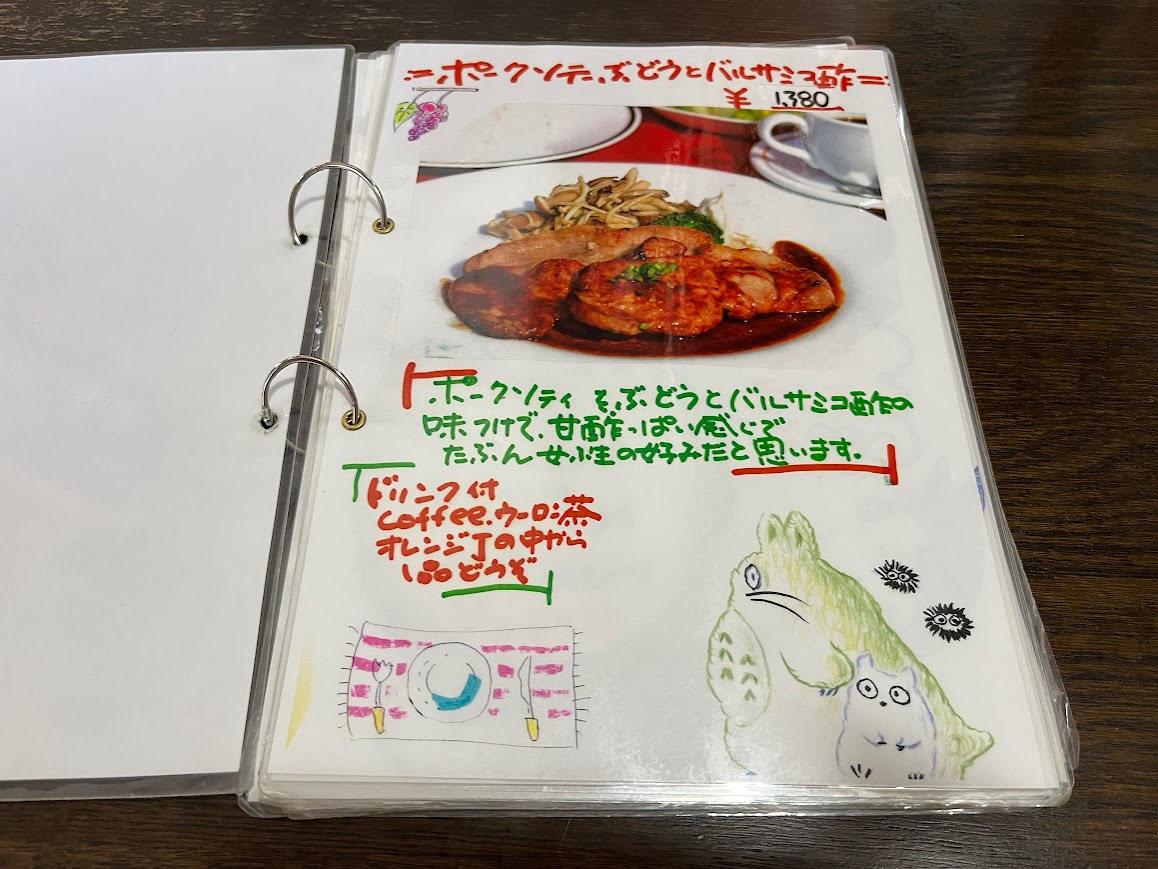 ポークソテーぶどうとバルサミコ酢
¥ 1,380
ポークソティ そぶどうとバルサミコ酢の
味つけで、甘酢っぱい感じで
たぶん女性の好みだと思います。
ドリンク付
Coffee、ウーロン茶
オレンジJの中から
1品どうぞ